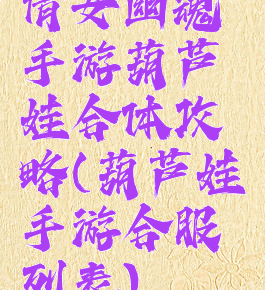 倩女幽魂
手游葫芦
娃合体攻
略(葫芦娃
手游合服
列表)